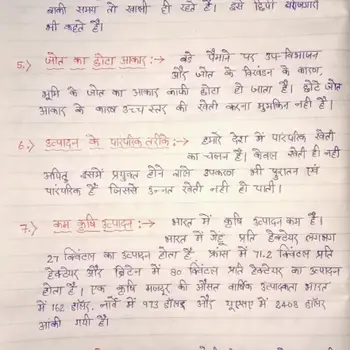 बाकी समय तो खाली ही रहते हैं। इसे छिपी बेरोजगारी
भी कहते हैं।
5.) जोत का छोटा आकार:→ बड़े पैमाने पर उप-विभाजन
और जोत के विखंडन के कारण,
भूमि के जोत का आकार काफी छोटा हो जाता है। छोटे जोत
आकार के कारण उच्च स्तर की खेती करना मुमकिन नही है।
6.) उत्पादन के पारंपरिक तरीके:→ हमारे देश में पारंपरिक खेती
का चलन है। केवल खेती ही नही
अपितु इसमें प्रयुक्त होने वाले उपकरण भी पुरातन एवं
पारंपरिक हैं जिससे उन्नत खेती नही हो पाती।
7.) कम कृषि उत्पादन:→ भारत में कृषि उत्पादन कम है।
भारत में गेहूं प्रति हेक्टेयर लगभग
27 क्विंटल का उत्पादन होता है, फ्रांस में 71.2 क्विंटल प्रति
हेक्टेयर और ब्रिटेन में 80 क्विंटल प्रति हेक्टेयर का उत्पादन
होता है। एक कृषि मजदूर की औसत वार्षिक उत्पादकता भारत
में 162 डॉलर, नॉर्वे में 973 डॉलर और यूएसए में 2408 डॉलर
आंकी गयी है।